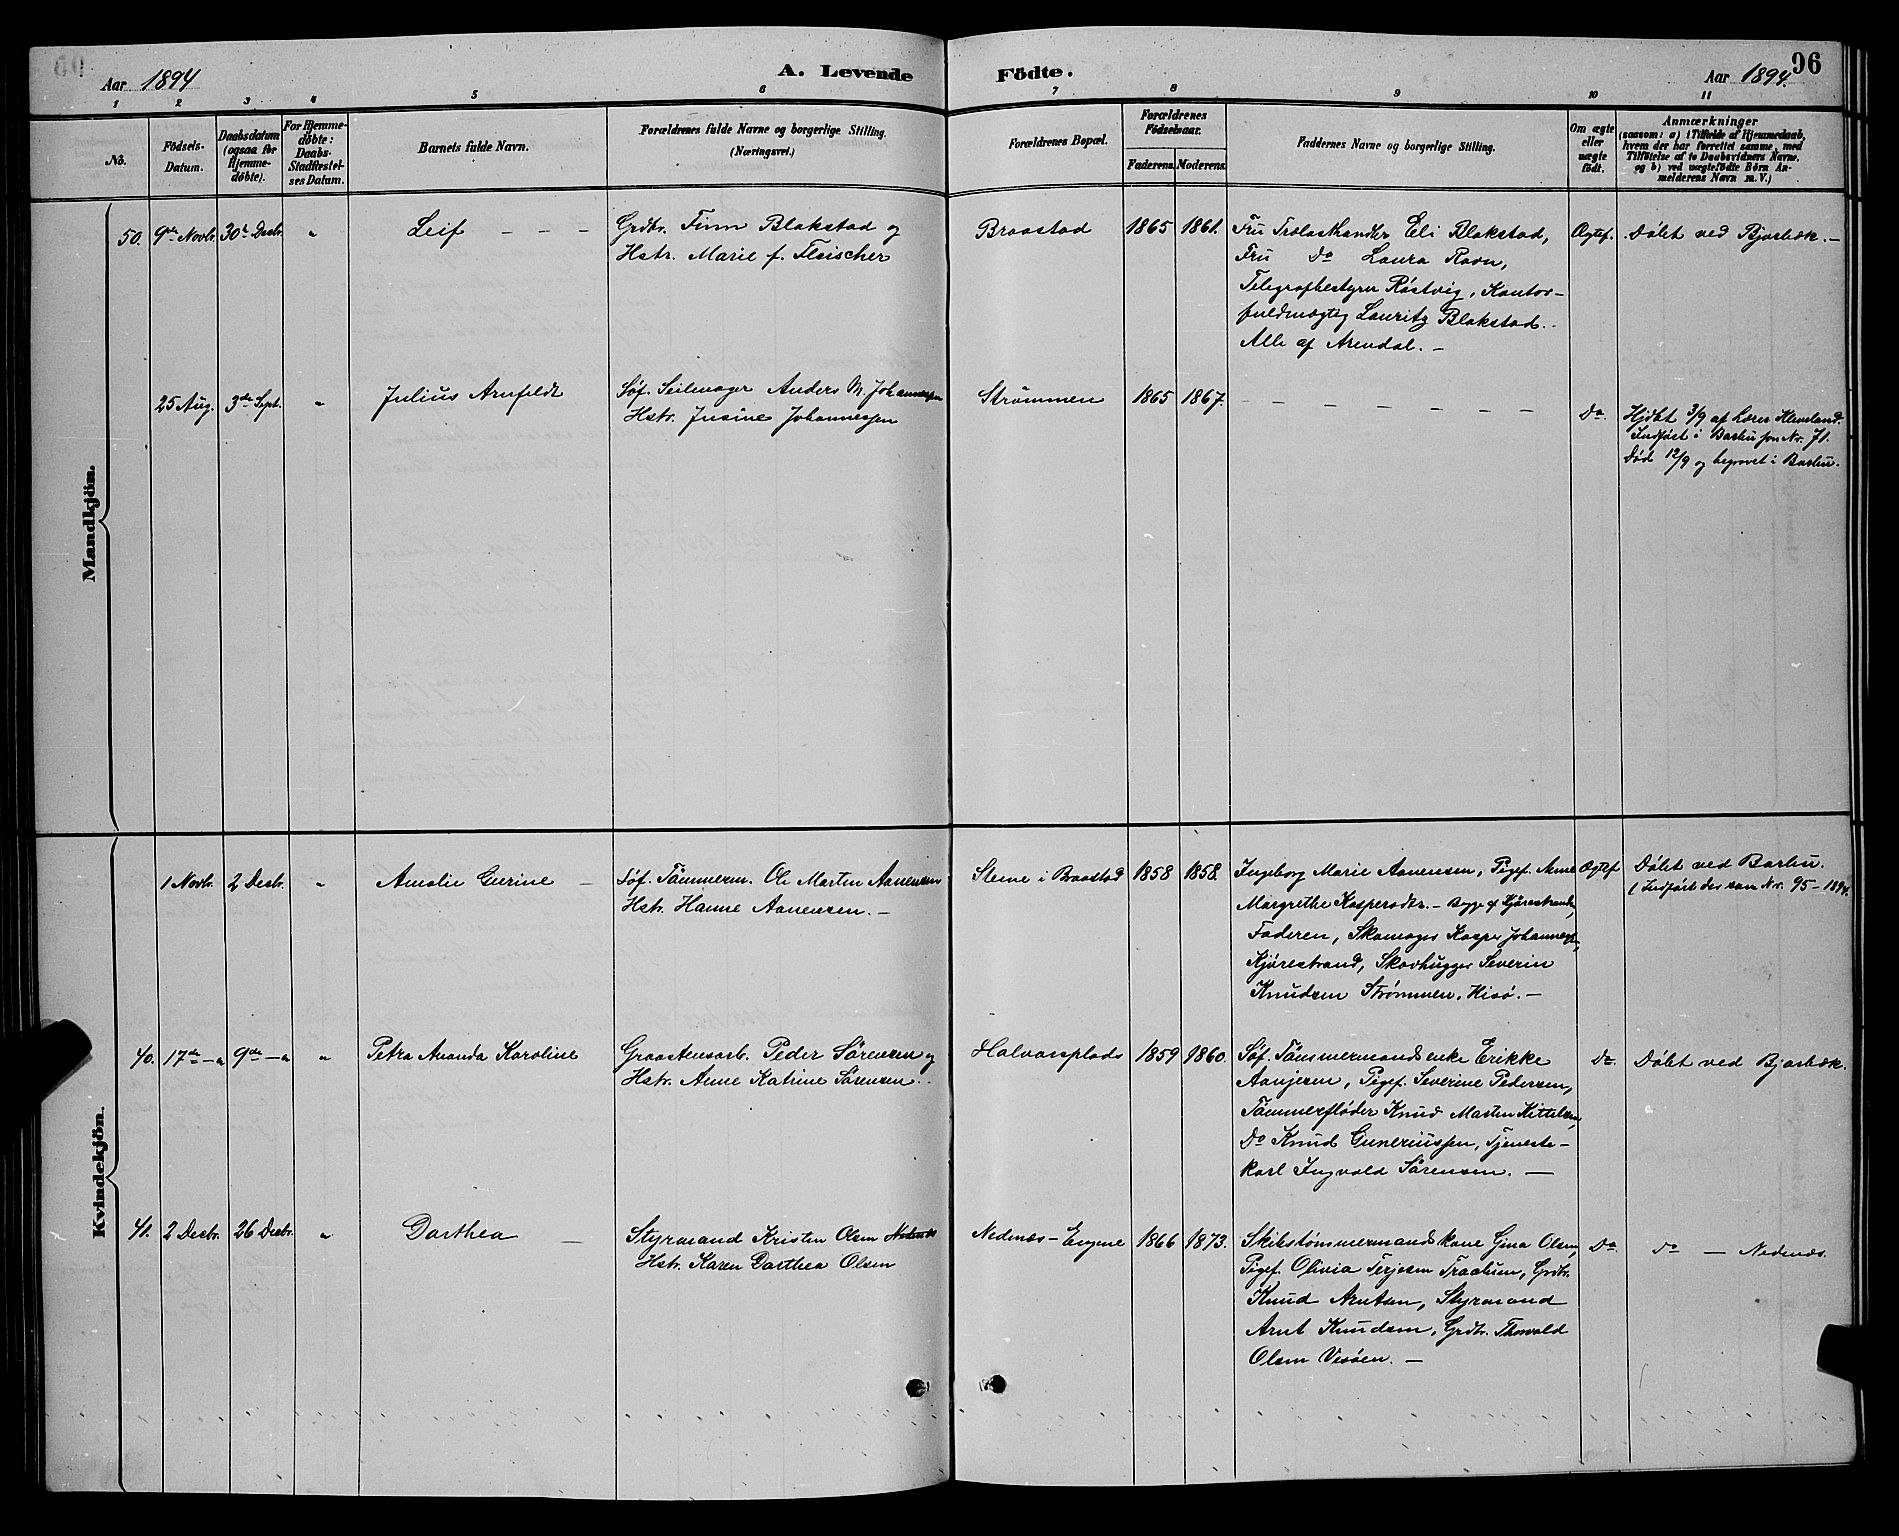 Aar 1894
A. Levende Födte.
Aar 1894.
96
1 2 3 4 5 6 7 8 9 10 11
No.
Födsels-
Datum.
Daabsdatum
(ogsaa for
Hjemme-
döbte).
For Hjemme-
döbte:
Daabs-
Stadfæstel-
ses Datum.
Barnets fulde Navn.
Forældrenes fulde Navne og borgerlige Stilling.
(Næringsvei.)
Forældrenes Bopæl.
Forældrenes
Födselsaar.
Faderens. Moderens.
Faddernes Navne og borgerlige Stilling.
Om ægte
eller
uægte
födt.
Anmærkninger
(saasom: a) i Tilfælde af Hjemmedaab,
hvem der har forrettet samme, med
Tilföielse af to Daabsvidners Navne,
og b) ved uægtefödte Börn An-
melderens Navn m. V.)
Mandkjön.
50. 9de Novbr. 30te Decbr. " Leif – – –
Grdbr. Finn Blakstad og
Hstr. Marie f. Fleischer
Braastad 1865 1861.
Fru Trælasthandler Eli Blakstad,
Fru Do Laura Ravn,
Telegrafbestyrer Röstvig, Kontor-
fuldmægtig Lauritz Blakstad.
Alle af Arendal. –
Ægtef. Döbt ved Bjorbæk. –
25 Aug. 3de Sept. " Julius Arnfeldt
Söf. Seilmager Anders M. Johannessen
Hstr. Jusine Johannessen
Strömmen 1865 1867. – – – – – – – –
Do. Hjdbt 3/9 af Lærer Kleveland.
Indfört i Barbu som Nr. 71.
Död 12/9 og begravet i Barbu.
Kvindekjön.
1 Novbr. 2 Decbr. " Amalie Gurine –
Söf. Tömmerm. Ole Martin Aanensen
Hstr. Hanne Aanensen. –
Stene i Braastad 1858 1858.
Ingeborg Marie Aanensen, Pigef. Anne
Margrethe Kaspersdtr. – Begge af Kjörestrand,
Faderen, Skomager Kasper Johannessen,
Kjörestrand, Skovhugger Severin
Knudsen Strömmen, Hisö. –
Ægtef Döbt ved Barbu.
(Indfört der som Nr. 95 – 1894.
40. 17de – " 9de – " " Petra Amanda Karoline
Graastensarb. Peder Sörensen og
Hstr. Anne Katrine Sörensen.
Halvorsplads 1859 1860.
Söf. Tömmermands enke Erikke
Aanjesen, Pigef. Severine Pedersen,
Tömmerflöder Knud Martin Kittelsen,
Do Knud Guneriussen, Tjeneste-
karl Ingvald Sörensen. –
Do. Döbt ved Bjorbæk.
41. 2 Decbr. 26 Decbr. " Dorthea –
Styrmand Kristen Olsen Nedenæs
Hstr. Karen Dorthea Olsen
Nedenæs-Engene 1866 1873.
Skibstömmermands kone Gina Olsen,
Pigef. Olivia Terjesen Traalum, Grdbr.
Knud Arntsen, Styrmand
Arnt Knudsen, Grdbr. Thorvald
Olsen Vesöen. –
Do. do – Nedenæs.